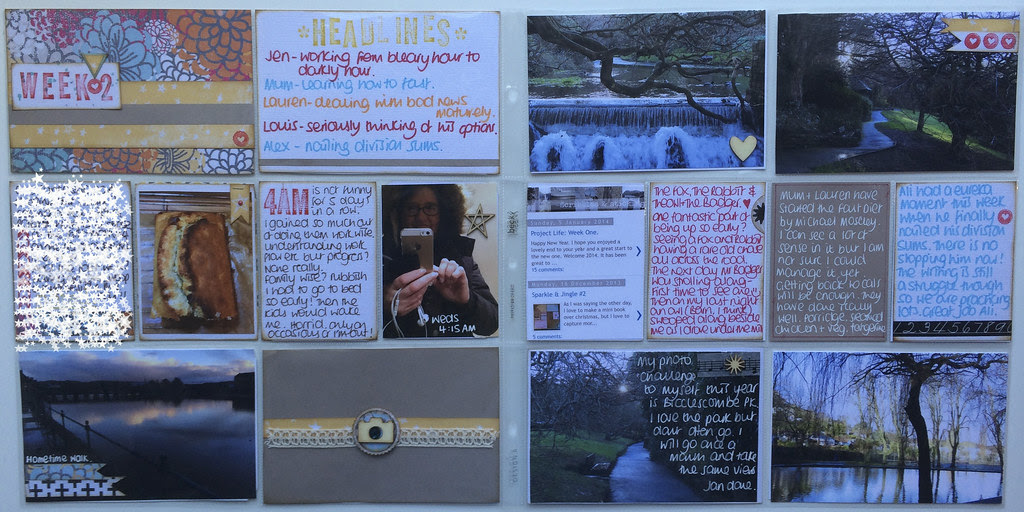 WEEK 2
HEADLINES
Jen - working from bleary hour to
darkly hour.
Mum - Learning how to fast.
Lauren - dealing with bad news
maturely.
Louis - seriously thinking of his options.
Alex - nailing division sums.
4AM is not funny
for 5 days
in a row.
I gained so much out
of doing them work wise,
understanding work
flow etc but progress?
None really.
Family wise? rubbish
I had to go to bed
so early! Then the
kids would wake
me. Horrid. Away on
Weds
4:15 AM
Sunday, 5 January 2014
Project Life: Week One.
Happy New Year. I hope you enjoyed a
lovely end to your year and a great start to
the new one. Welcome 2014, it has been
great to ...
15 comments:
Monday, 16 December 2013
Sparkle & Jingle #2
As I was saying the other day,
I love to make a mini book
over christmas, but I love to
capture mor...
5 comments:
The Fox, The Rabbit &
The Badger.
one fantastic part of
being up so early?
seeing a Fox and Rabbit
all across the road.
The next day Mr Badger
was strolling along -
First time to see one!
Then on my last night
an owl (Barn, I think)
swooped along beside
me as I drove under the
Mum + Lauren have
started the Fast Diet
by Michael Mosley
I can see a lot of
sense in it but I am
not sure I could
manage it yet.
getting back to cals
will be enough. They
have done fab
with porridge, seafood
chicken + veg, tangerine
Ali had a eureka
moment this week
when he finally
nailed his division
sums. There is no
stopping him now!
The writing is still
a struggle though
so we are practicing
lots. Great job Ali.
1 2 3 4 5 6 7 8 9 0
Hometime Walk.
My photo
challenge
to myself this year
is Bicclescombe Pk.
I love the park but
don't often go. I
will go once a
month and take
the same view
Jan done.